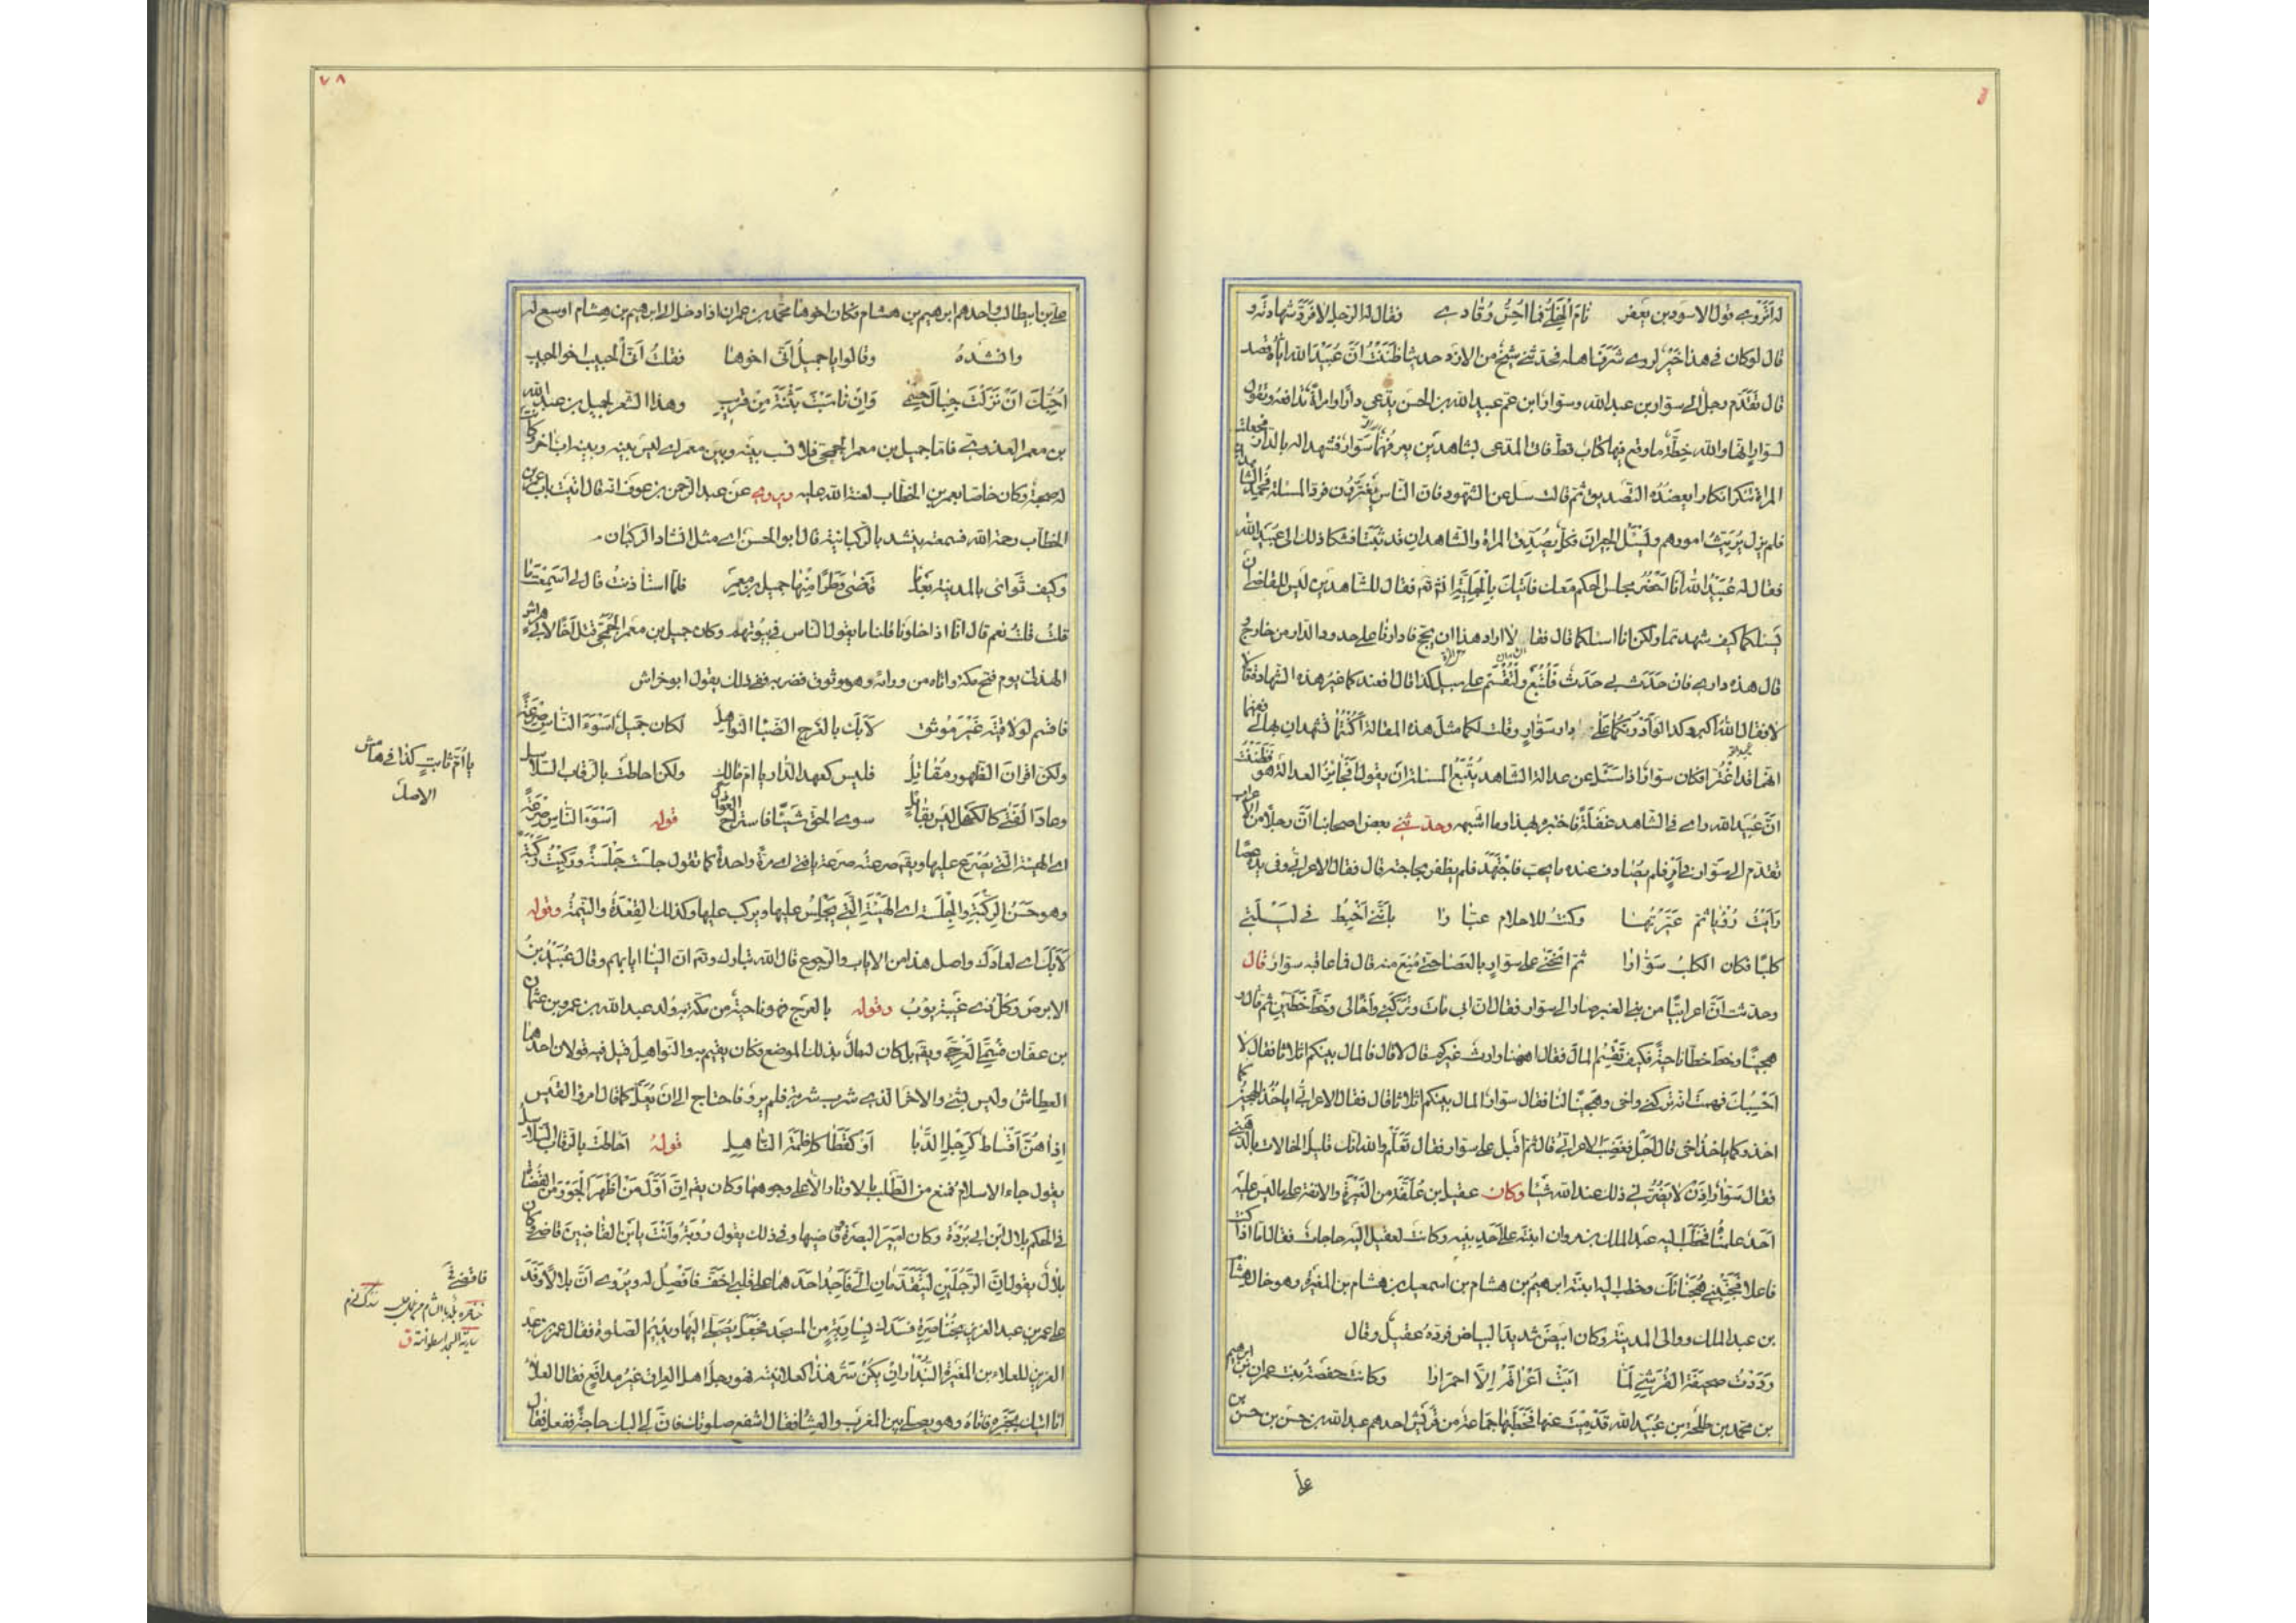 له أتروي قول الاسود بن يعفر نام الخلي فما احس رقادي فقال له الرجل لا فرد شهادته و
قال لو كان في هذا خير لروى شرف اهله فحدثني شيخ من الازد حديثا ظننت ان عبيد الله اياه قصد
قال تقدم رجل الى سوار بن عبد الله وسوار ابن عم عبيد الله بن الحسن يدعي دارا وامراة تدافعه وتقول
لسوار انها والله خطة ما وقع فيها كتاب قط فاتى المدعي بشاهدين يعرفهما سوار فشهدا له بالدار وجعلت
المراة تنكر انكارا يعضده التصديق ثم قالت سل عن الشهود فان الناس يتغيرون فرد المسئلة فحمد الشاهدان
فلم يزل يريث امورهم ويسئل الجيران فكل يصدق المراة والشاهدان قد ثبتا فشكا ذلك الى عبيد الله
فقال له عبيد الله انا احضر مجلس الحكم معك فاتيك بالجلية ان شاء الله فقال للشاهدين ليس للقاضي ان
يسئلكما كيف شهدتما ولكن انا اسئلكما قال فقالا اراد هذا ان يحج فادارنا على حدود الدار من خارج و
قال هذه داري فان حدث بي حدث فلتبع ولتقسم على سبيل كذا قال افعندكما غير هذه الشهادة قالا
لا فقال الله اكبر وكذا لو ادرتكما على دار سوار وقلت لكما مثل هذه المقالة اكنتما تشهدان بها لي ففهما
انهما قد اغترا فكان سوار اذا سئل عن عدالة الشاهد يتبع المسئلة ان يقول افجائز العدالة هو فظننت
ان عبيد الله راى في الشاهد غفلة فاختبره بهذا وما اشبهه وحدثني بعض اصحابنا ان رجلا من الاعراب
تقدم الى سوار في امر فلم يصادف عنده ما يحب فاجتهد فلم يظفر بحاجته قال فقال الاعرابي وفي يده عصا
رايت رؤيا ثم عبرتها وكنت للاحلام عبارا بانني اخبط في ليلتي
كلبا فكان الكلب سوارا ثم انحنى على سوار بالعصا حتى منع منه قال فما عاقبه سوار قال
وحدثت ان اعرابيا من بني العنبر صار الى سوار فقال ان ابي مات وتركني واخا لي وخط خطين ثم قال و
هجينا وخط خطا ناحية فكيف نقسم المال فقال اههنا وارث غيركم قال لا قال فالمال بينكم اثلاثا فقال لا
احسبك فهمت انه تركني واخي وهجينا لنا فقال سوار المال بينكم اثلاثا قال فقال الاعرابي اياخذ الهجين كما
اخذ وكما ياخذ اخي قال اجل فغضب الاعرابي قال ثم اقبل على سوار فقال تعلم والله انك قليل الخالات بالدهنى
فقال سوار اذن لا يضرني ذلك عند الله شيئا وكان عقيل بن علفة من الغيرة والانفة على ما ليس عليه
احد علمناه فخطب اليه عبد الملك بن مروان ابنته على احد بنيه وكانت لعقيل اليه حاجات فقال اما اذ كنت
فاعلا فجنبني هجناءك وخطب اليه ابنته ابرهيم بن هشام بن اسمعيل بن هشام بن المغيرة وهو خال هشام
بن عبد الملك ووالي المدينة وكان ابيض شديد البياض فرده عقيل وقال
رددت صحيفة القرشي لما ابت اعراقه الا احمرارا وكانت حفصة بنت عمران بن ابرهيم
بن محمد بن طلحة بن عبيد الله قد ميت عنها فخطبها جماعة من قريش احدهم عبد الله بن حسن بن حسن بن
على
٧٨
علي بن ابيطالب واحدهم ابرهيم بن هشام فكان اخوها محمد بن عمران اذا دخل الى ابرهيم بن هشام اوسع له
وانشده وقالوا يا جميل اتى اخوها فقلت اتى الحبيب اخو الحبيب
احبك ان نزلت جبال حسمى وان ناسبت بثنة من قريب وهذا الشعر لجميل بن عبد الله
بن معمر العذري فاما جميل بن معمر الجمحي فلا نسب بينه وبين معمر اي ليس بينه وبينه اب اخر كانت
له صحبة وكان خاصا بعمر بن الخطاب لعنة الله عليه ويروى عن عبد الرحمن بن عوف انه قال اتيت باب عمر بن
الخطاب رحمه الله فسمعته ينشد بالركبانية قال ابو الحسن اي مثل انشاد الركبان
وكيف ثوائي بالمدينة بعد ما قضى وطرا منها جميل بن معمر فلما استاذنت قال لي اسمعت ما
قلت قلت نعم قال انا اذا خلونا قلنا ما يقول الناس في بيوتهم وكان جميل بن معمر الجمحي قتل اخا لابي خراش
الهذلي يوم فتح مكة واتاه من ورائه وهو موثوق فضربه ففي ذلك يقول ابو خراش
فاقسم لو لاقيته غير موثق لآبك بالعرج الضباع النواهل لكان جميل اسوء الناس صرعة
ولكن اقران الظهور مقاتل فليس كعهد الدار يا ام مالك ولكن احاطت بالرقاب السلاسل
وعاد الفتى كالكهل ليس بقائل سوى الحق شيئا فاستراح العواذل قوله اسوء الناس صرعة
اي الهيئة التي يصرع عليها ويقم صرعته صرعة يا فتى اي مرة واحدة كما تقول جلست جلسة وركبت ركبة
وهو حسن الركبة والجلسة اي الهيئة التي يجلس عليها ويركب عليها وكذلك القعدة والنيمة وقوله
لآبك اي لعادك واصل هذا من الاياب والرجوع قال الله تبارك وتعم ان الينا ايابهم وقال عبيد بن
الابرص وكل ذي غيبة يؤب وقوله بالعرج فهو ناحية من مكة به ولد عبد الله بن عمرو بن عثمان
بن عفان فسمي العرجي ويقم بل كان له مال بذلك الموضع فكان يقيم به والنواهل فيل فيه قولان احدهما
العطاش وليس بشيء والاخر الذي شرب شربة فلم يرو فاحتاج الى ان يعل كما قال امرؤ القيس
اذا هن اقساط كرجل الدبا او كقطا كاظمة الناهل قوله احاطت بالرقاب السلاسل
يقول جاء الاسلام فمنع من الطلب بالاوتار الا على وجوهها وكان يقم ان اول من اظهر الجور من القضاة
في الحكم بلال ابن ابي بردة وكان امير البصرة وقاضيها وفي ذلك يقول رؤبة وانت يا بن القاضيين قاضي وكان
بلال يقول ان الرجلين ليتقدمان الي فاجد احدهما على قلبي اخف فاقضي له ويروى ان بلالا وفد
على عمر بن عبد العزيز بخناصرة فسدك بسارية من المسجد فجعل يصلي اليها ويديم الصلوة فقال عمر بن عبد
العزيز للعلاء بن المغيرة البندار ان يكن سر هذا كعلانيته فهو رجل اهل العراق غير مدافع فقال العلاء
انا اتيك بخبره فاتاه وهو يصلي بين المغرب والعشا فقال اشفع صلوتك فان لي اليك حاجة ففعل فقال
يا ام ثابت كذا في هامش
الاصل